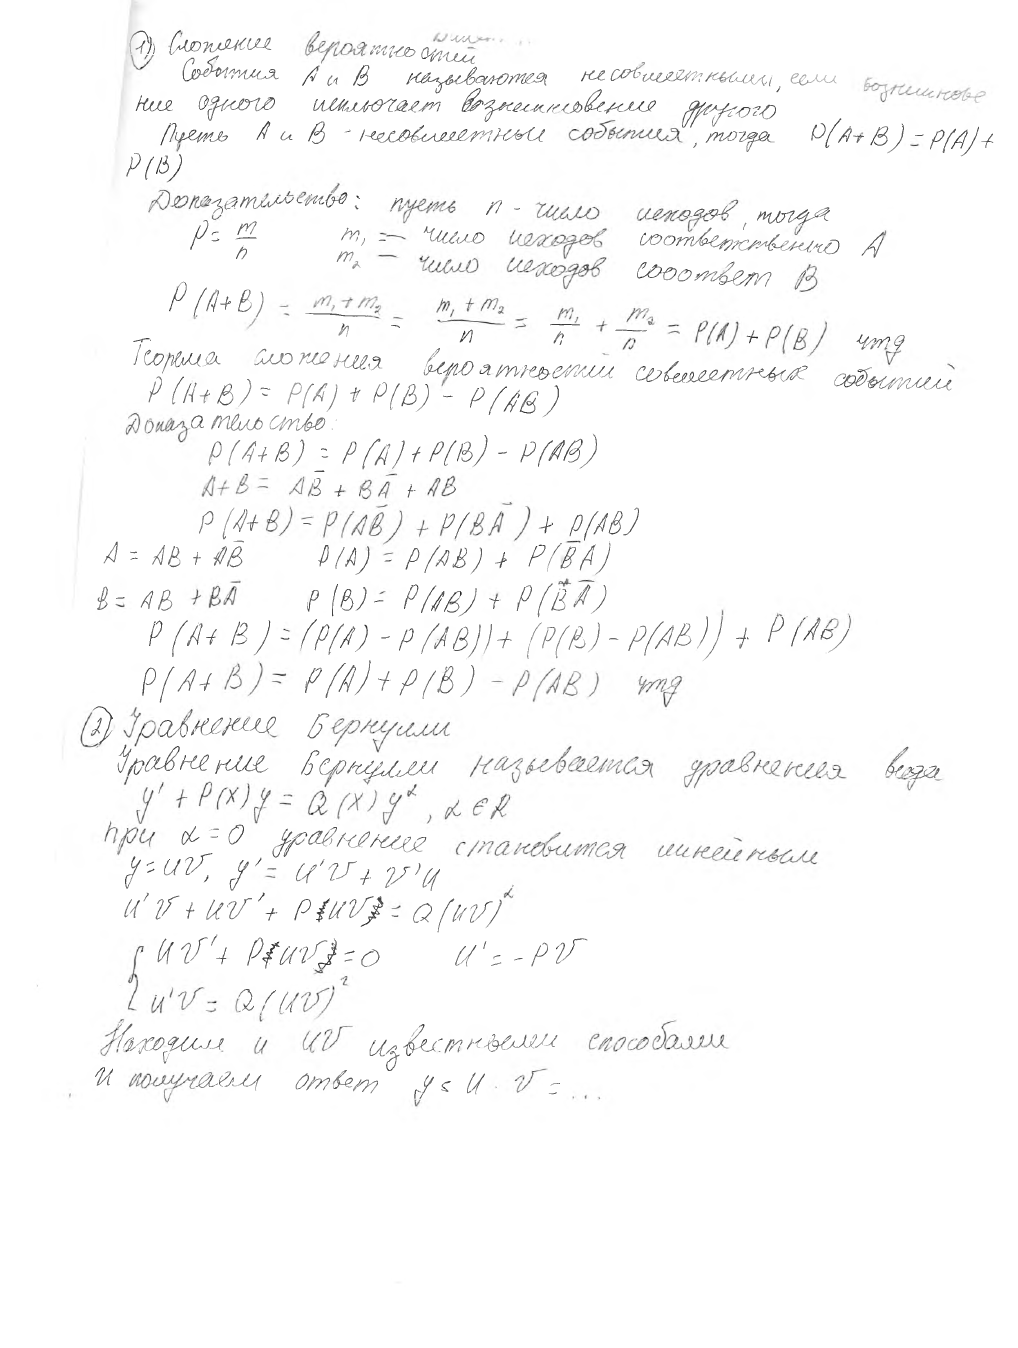 1) Сложение вероятностей
События А и В называются несовместными, если возникнове
ние одного исключает возникновение другого
Пусть А и В - несовместные события, тогда P(A+B)=P(A)+
P(B)
Доказательство: пусть n - число исходов, тогда
P = m/n m₁ = — число исходов соответственно A
m₂ — число исходов сооответ B
P(A+B) = (m₁+m₂)/n = (m₁+m₂)/n = m₁/n + m₂/n = P(A)+P(B) чтд
Теорема сложения вероятностей совместных событий
P(A+B) = P(A)+P(B) - P(AB)
Доказательство:
P(A+B) = P(A)+P(B) - P(AB)
A+B = AB̄ + BĀ + AB
P(A+B) = P(AB̄) + P(BĀ) + P(AB)
A = AB + AB̄ P(A) = P(AB) + P(B̄A)
B = AB + BĀ P(B) = P(AB) + P(BĀ)
P(A+B) = (P(A) - P(AB)) + (P(B) - P(AB)) + P(AB)
P(A+B) = P(A)+P(B) - P(AB) чтд
2) Уравнение Бернулли
Уравнение Бернулли называется уравнения вида
y' + P(x)y = Q(x)y^α, α ∈ R
при α = 0 уравнение становится линейным
y=UV, y' = U'V + V'U
U'V + UV' + PUV = Q(UV)^α
{ UV' + PUV = 0 U' = -PV
{ U'V = Q(UV)²
Находим и UV известными способами
И получаем ответ y = U · V = ...